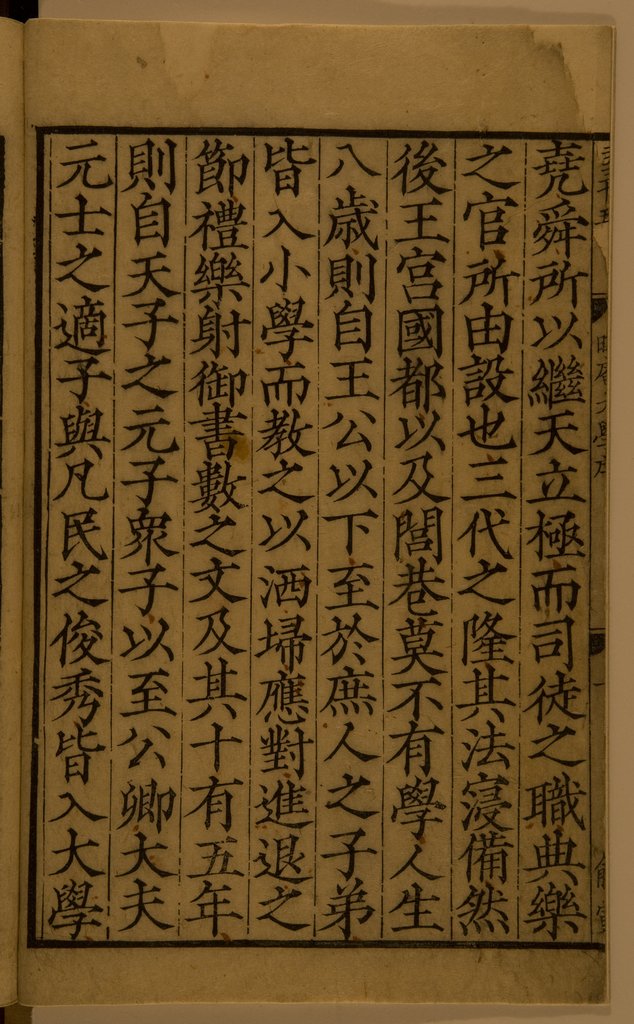 堯舜所以繼天立極而司徒之職典樂
之官所由設也三代之隆其法寖備然
後王宮國都以及閭巷莫不有學人生
八歲則自王公以下至於庶人之子弟
皆入小學而教之以洒埽應對進退之
節禮樂射御書數之文及其十有五年
則自天子之元子衆子以至公卿大夫
元士之適子與凡民之俊秀皆入大學